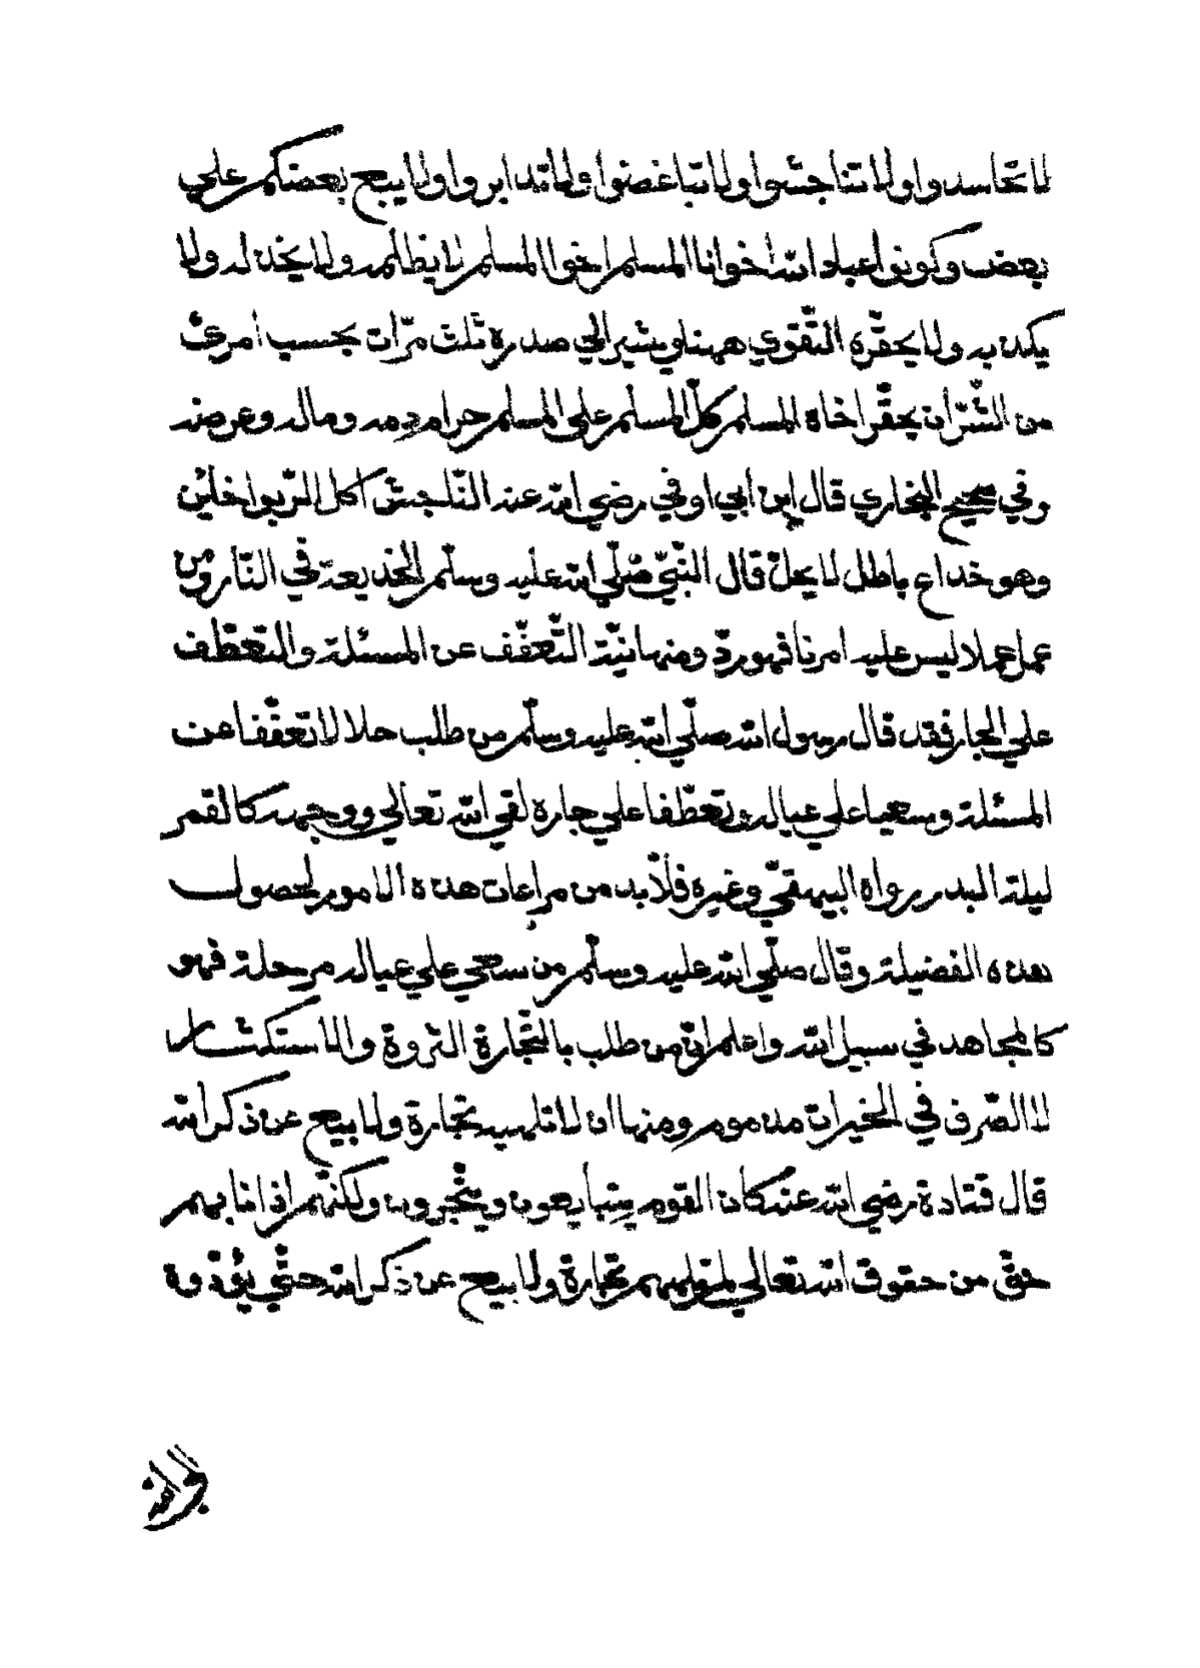 لا تحاسدوا ولا تناجشوا ولا تباغضوا ولا تدابروا ولا يبيع بعضكم علي
بعض وكونوا عباد الله اخوانا المسلم اخوا المسلم لا يظلمه ولا يخذله ولا
يكذبه ولا يحقّره التّقوي ههنا ويشير الي صدره ثلث مرّات بحسب امرئ
من الشّرّ ان يحقّر اخاه المسلم كلّ المسلم علي المسلم حرام دمه وماله وعرضه
وفي صحيح البخاري قال ابن أبي اوفي رضي الله عنه النّاجش آكل الرّبوا خائن
وهو خداع باطل لا يحلّ قال النّبيّ صلّي الله عليه وسلّم الخذيعة في النّار ومن
عمل عملا ليس عليه امرنا فهو ردّ ومنها نيّة التّعفّف عن المسئلة والتعطّف
علي الجار فقد قال رسول الله صلّي الله عليه وسلّم من طلب حلالا تعفّفا عن
المسئلة وسعيا علي عياله وتعطّفا علي جاره لقي الله تعالي ووجهه كالقمر
ليلة البدر رواه البيهقيّ وغيره فلا بد من مراعات هذه الامور لحصول
هذه الفضيلة وقال صلّي الله عليه وسلّم من سعي علي عياله من حلة فهو
كالمجاهد في سبيل الله واعلم انّ من طلب بالتّجارة الثروة والاستكثار
لا الصّرف في الخيرات مذموم ومنها ان لا تلهيه تجارة ولا بيع عن ذكر الله
قال قتادة رضي الله عنه كان القوم يتبايعون ويتّجرون ولكنّهم اذا نابهم
حقّ من حقوق الله تعالي لم تلههم تجارة ولا بيع عن ذكر الله حتّي يؤدّوه